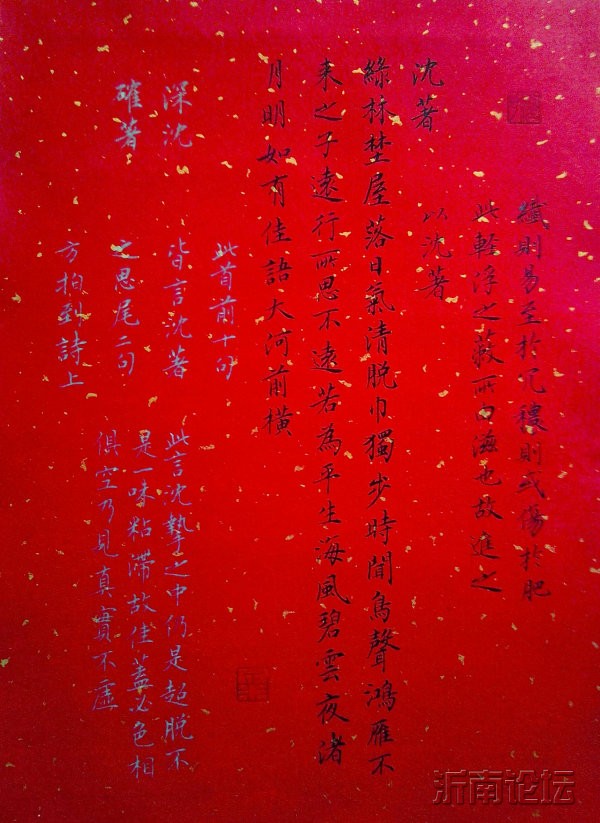 纖則易至於冗穠則或傷於肥
此輕浮之蔽所由滋也故進之
以沈著
沈著
綠林埜屋落日氣清脫巾獨步時聞鳥聲鴻雁不
來之子遠行所思不遠若為平生海風碧雲夜渚
月明如有佳語大河前橫
深沈
確著
此首前十句
皆言沈著
之思尾二句
方拍到詩上
此言沈摯之中仍是超脫不
是一味粘滯故佳蓋必色相
俱空乃見真實不虛
沂南论坛